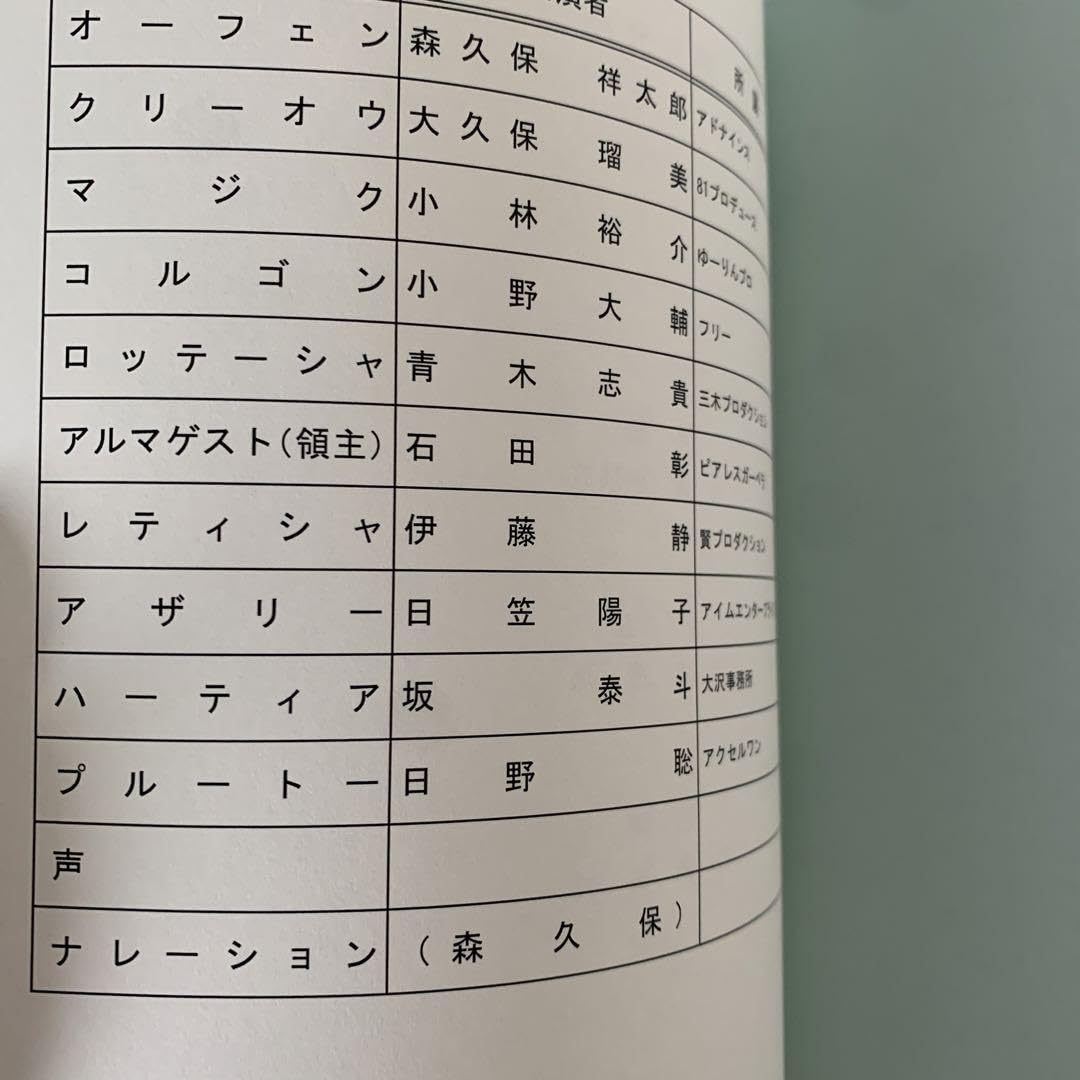 演者 所属
オーフェン 森久保 祥太郎 アドナインス
クリーオウ 大久保瑠美 81プロデュース
マジク 小林裕介 ゆーりんプロ
コルゴン 小野大輔 フリー
ロッテーシャ 青木志貴 三木プロダクション
アルマゲスト(領主) 石田彰 ピアレスガーベラ
レティシャ 伊藤静 賢プロダクション
アザリー 日笠陽子 アイムエンタープライズ
ハーティア 坂泰斗 大沢事務所
プルートー 日野聡 アクセルワン
声
ナレーション (森久保)